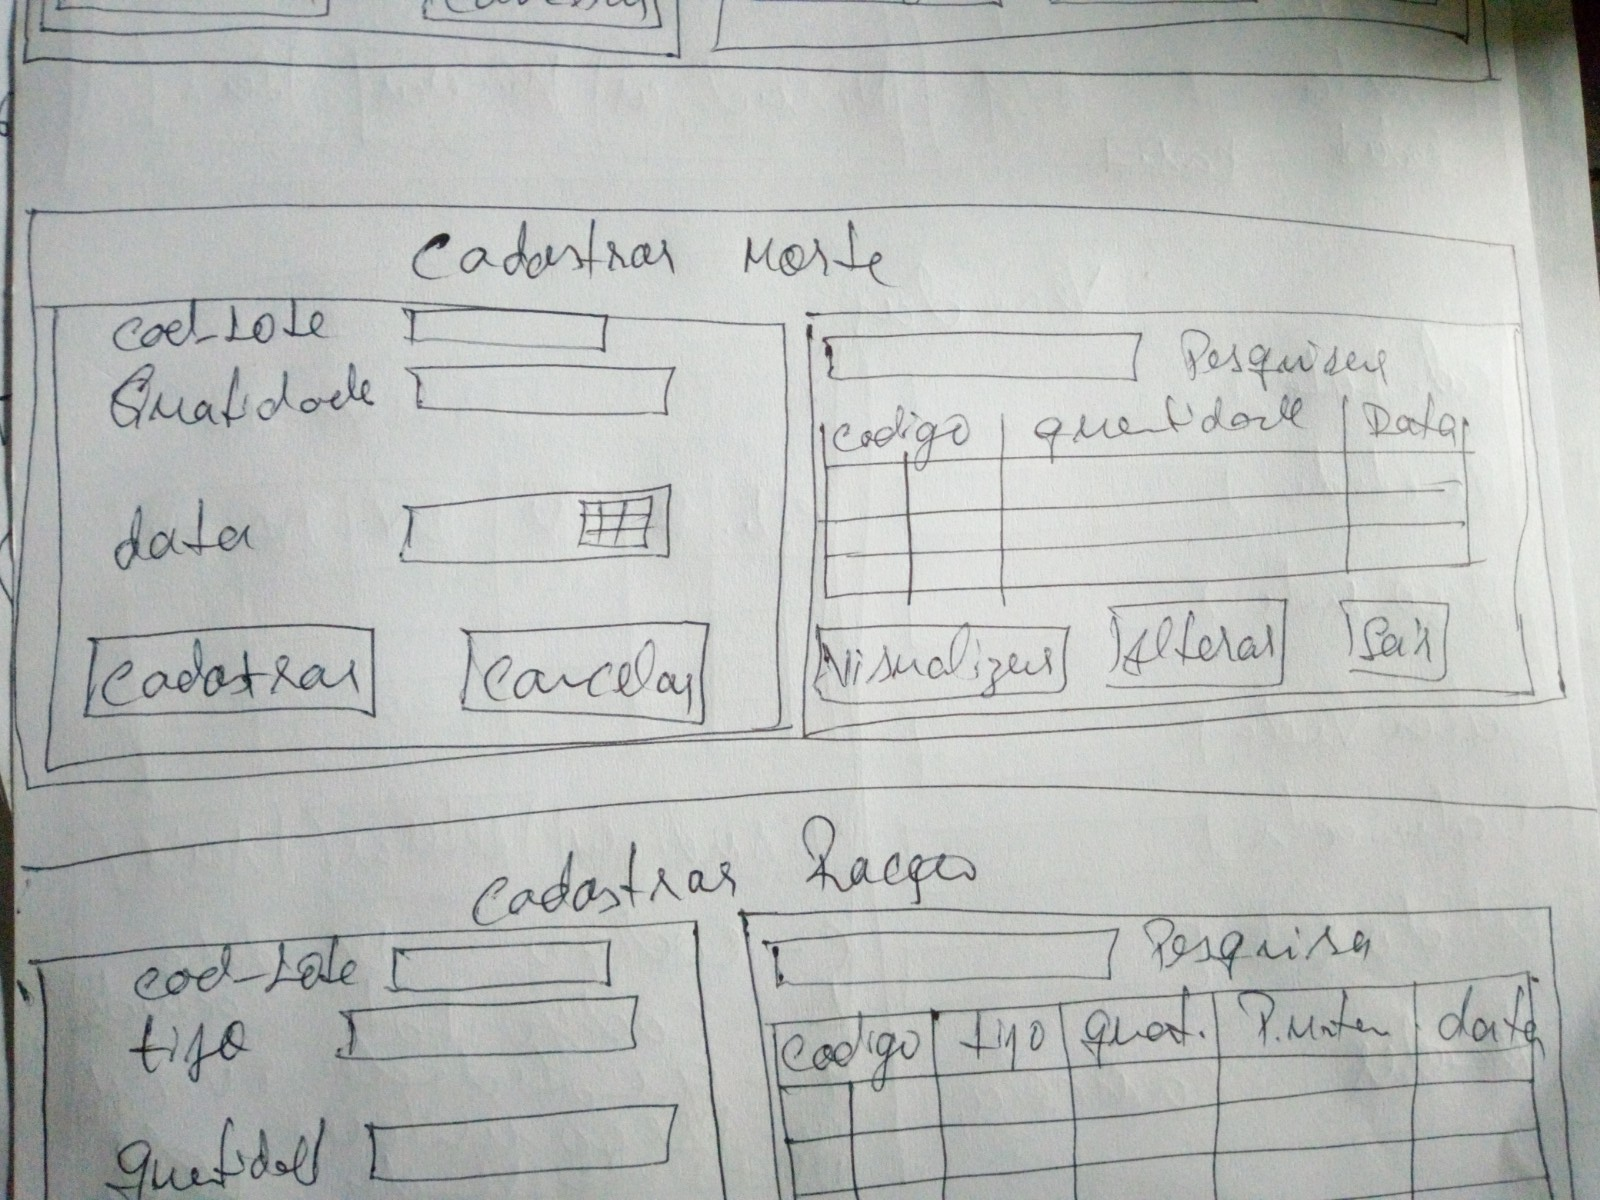 Cancelar
Cadastrar Morte
cod-Lote
Quatidade
data
Cadastrar Cancelar
Pesquisar
codigo quantidade Data
Visualizar Alterar Sair
Cadastrar Racção
cod-Lote
tipo
Pesquisa
codigo tipo quat. data